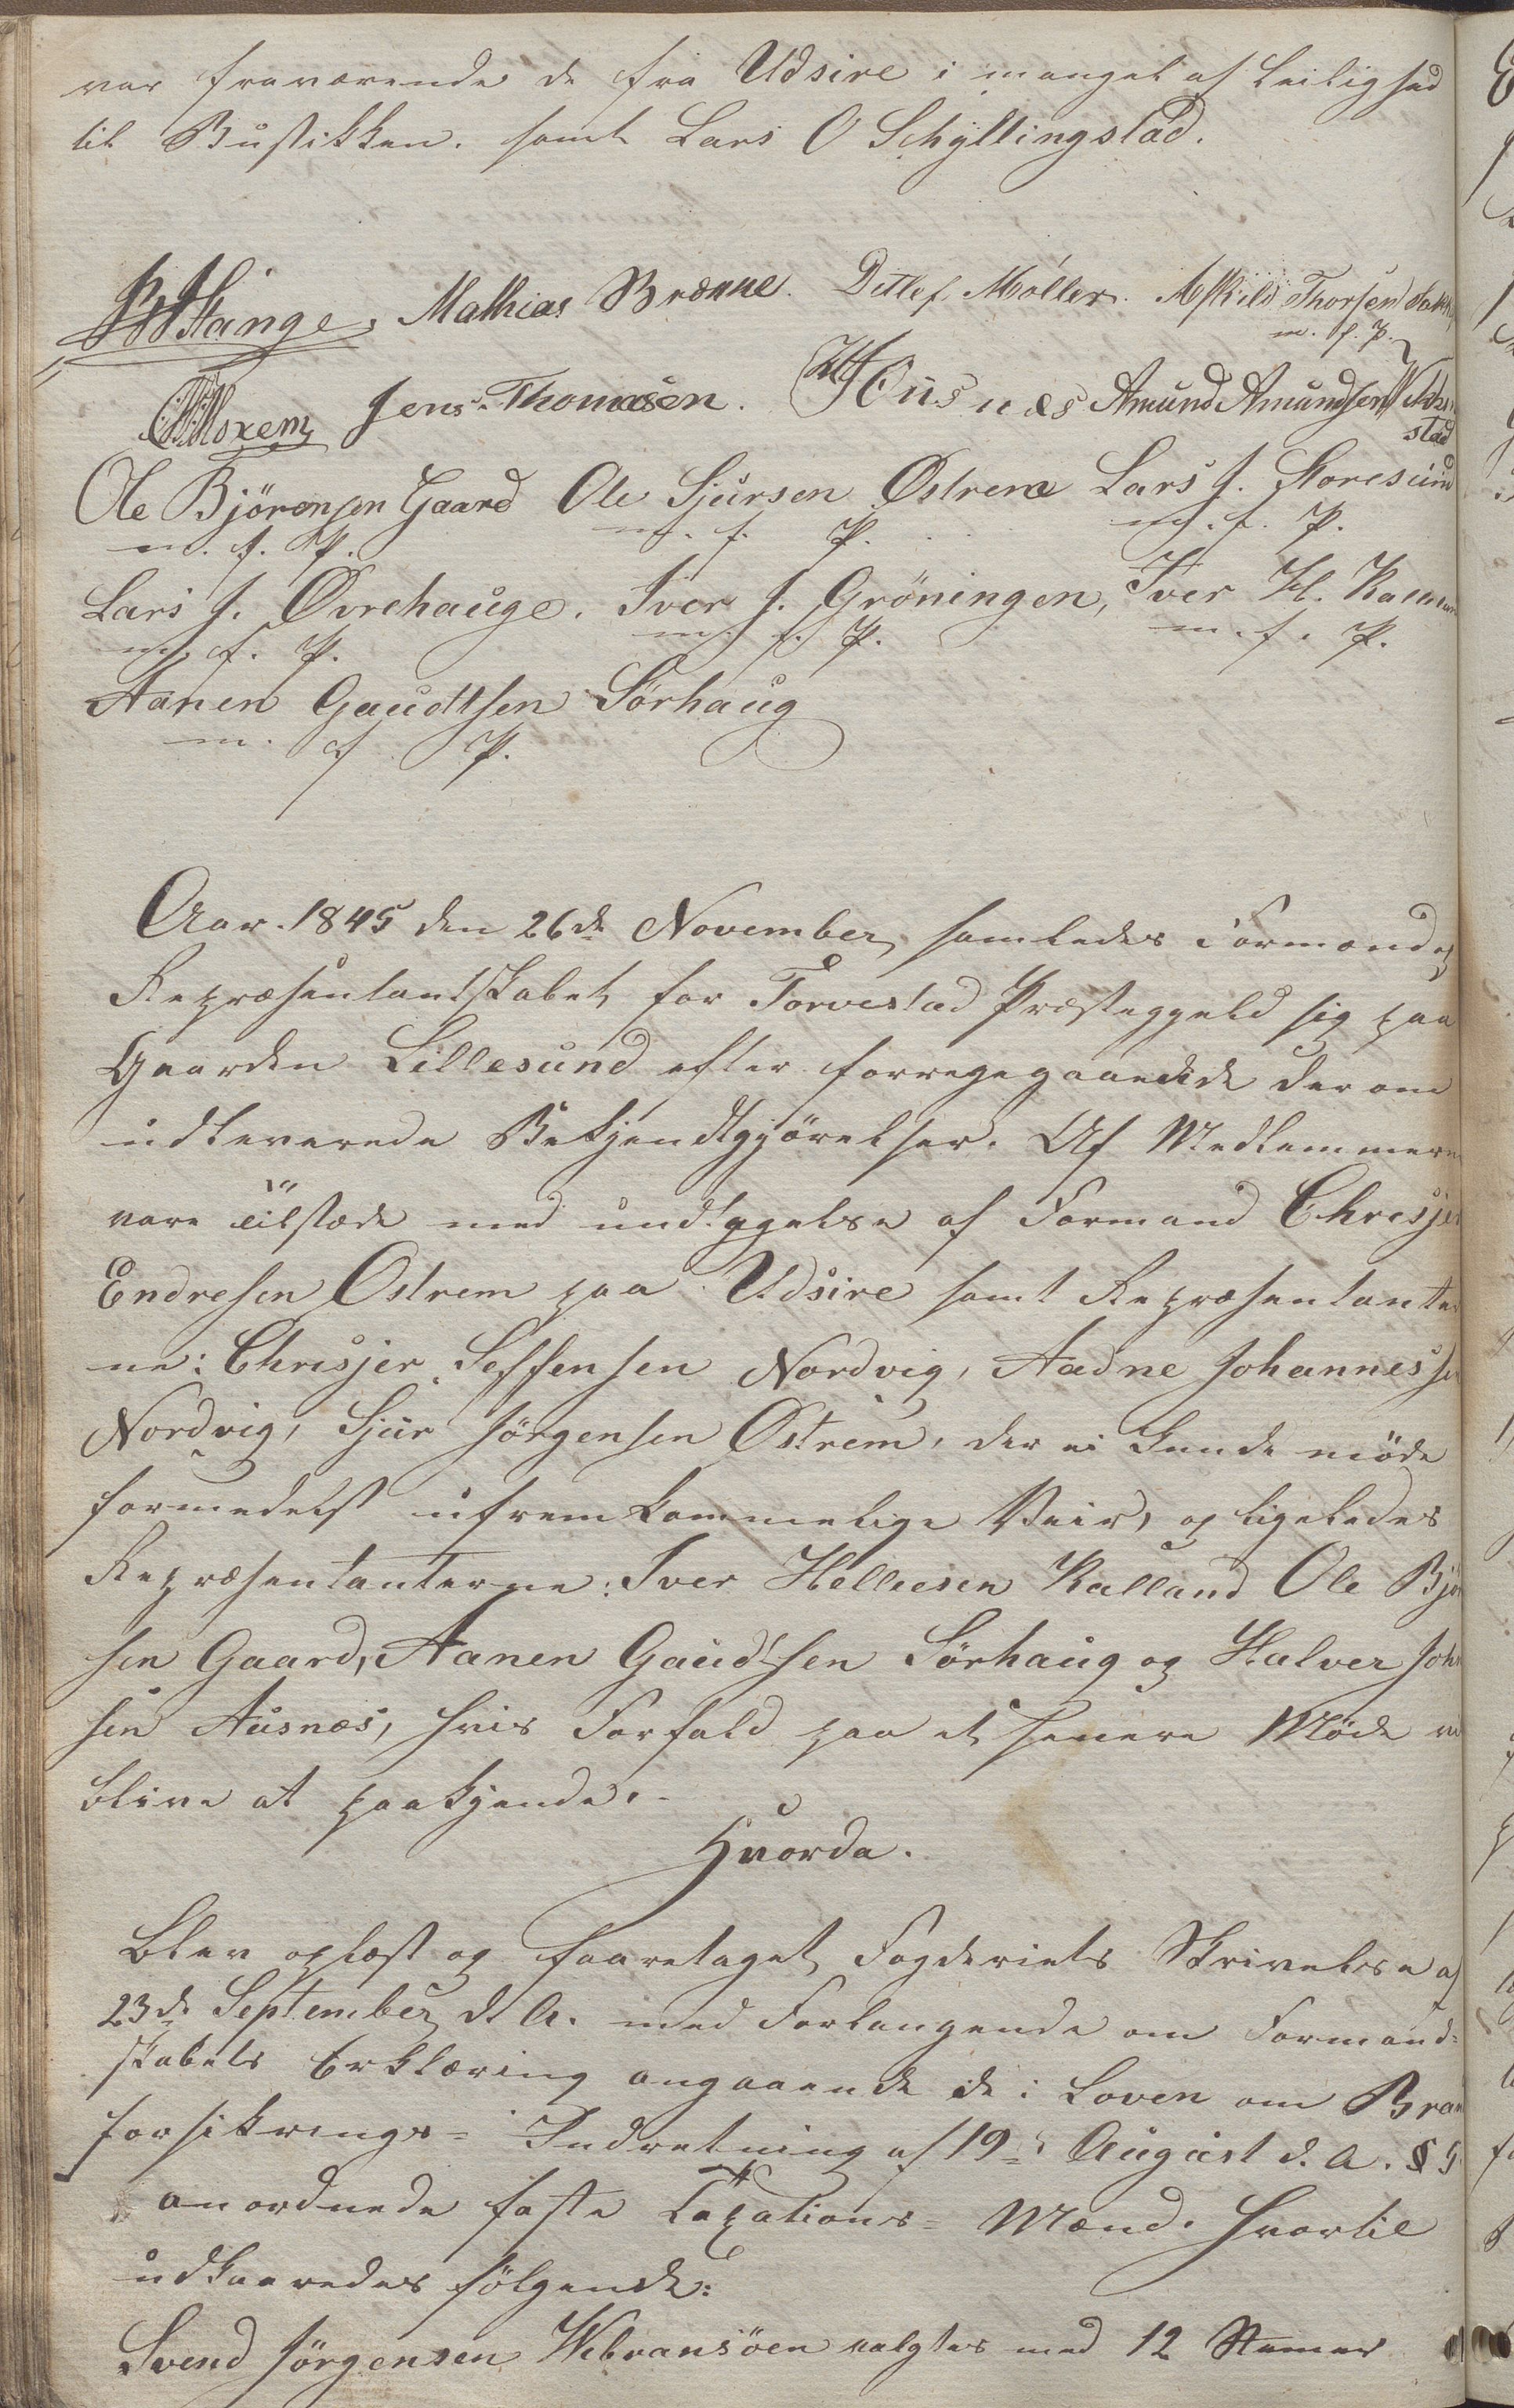 var fraværende de fra Udsire i mangel af Leilighed
til Budstikken. samt Lars O Schyllingstad.
Stange. Mathias Brænne. Ditlef Møller. Askild Thorsen
m. f. P.
Jens Thomasen. Amund Amundsen
stad
Ole Bjørensen Gaard Ole Sjursen Østrem Lars J. Storesund
m. f. P. m. f. P. m. f. P.
Lars J. Øvrehauge. Iver J. Grøningen, Iver H.
m. f. P. m. f. P. m. f. P.
Aanen Gaudtsen Sørhaug
m. f. P.
Aar 1845 den 26de November samledes Formænd og
Repræsentantskabet for Torvestad Præstegjeld sig paa
Gaarden Lillesund efter forregegaaende derom
udleverede Bekjendtgjørelser. Af Medlemmerne
vare tilstæde med undtagelse af Formand Chresjer
Endresen Østrem paa Udsire samt Repræsentanter
ne: Chresjer Seffensen Nordvig, Aadne Johannessen
Nordvig, Sjur Jørgensen Østrem, der ei kunde møde
formedelst ufremkommelige Veir, og ligeledes
Repræsentanterne: Iver Helliesen Kalland Ole Bjør
sen Gaard, Aanen Gaudtsen Sørhaug og Halver John
sen Ausnæs, hvis Forfald paa et senere Møde vil
blive at paakjende.
Hvorda.
Blev oplæst og foretaget Fogderiets Skrivelse af
23de September d. A. med Forlangende om Formand-
skabets Erklæring angaaende de i Loven om Brand
forsikrings- Indretning af 19de August d. A. § 5
anordnede faste Taxations- Mænd. Hvortil
udkaaredes følgende:
Svend Jørgensen Vibransøen valgtes med 12 Stemer